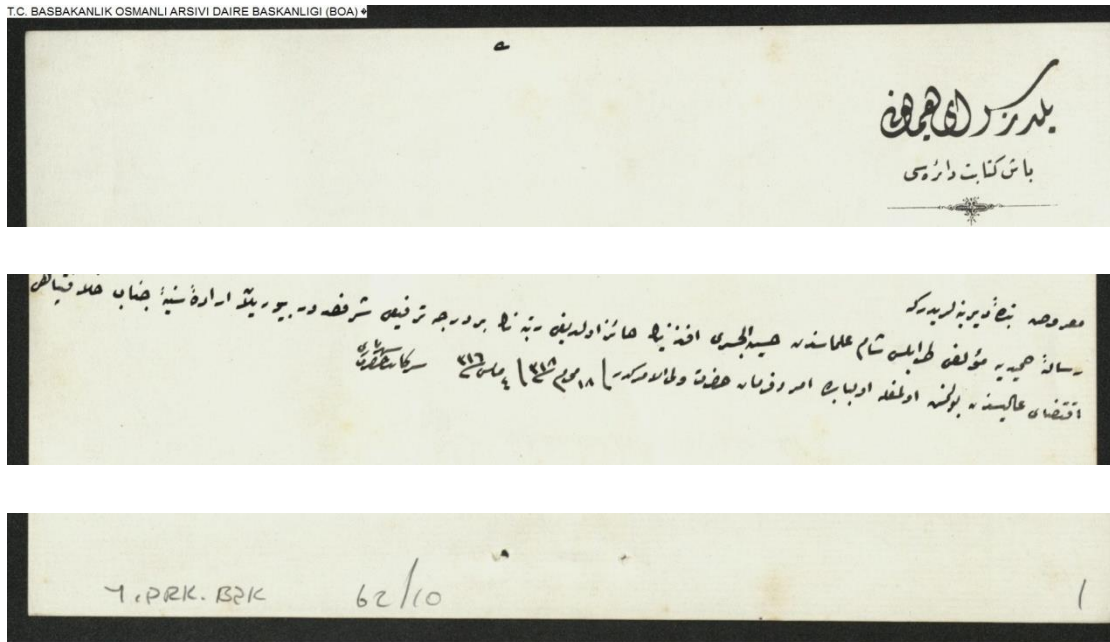 T.C. BASBAKANLIK OSMANLI ARSIVI DAIRE BASKANLIGI (BOA)
یلدیز سرای همایونی
باش کتابت دائره‌سی
معروض بندهٔ دیرینه‌لریدرکه
رسالهٔ حمیدیه مؤلفی طرابلس شام علماسندن حسین الجسری افندینك حائز اولدیغی رتبه‌نك بر درجه ترفیعی شرفصدور بیوریلان ارادهٔ سنیهٔ جناب خلافتپناهی
اقتضای عالیسندن بولنمش اولمغله اولبابده امر و فرمان حضرت ولی الامرکدر ١٨ محرم ٣١٨ ٤ مایس ٣١٦
سرکاتب حضرت شهریاری
Y.PRK.BŞK 62/10 1